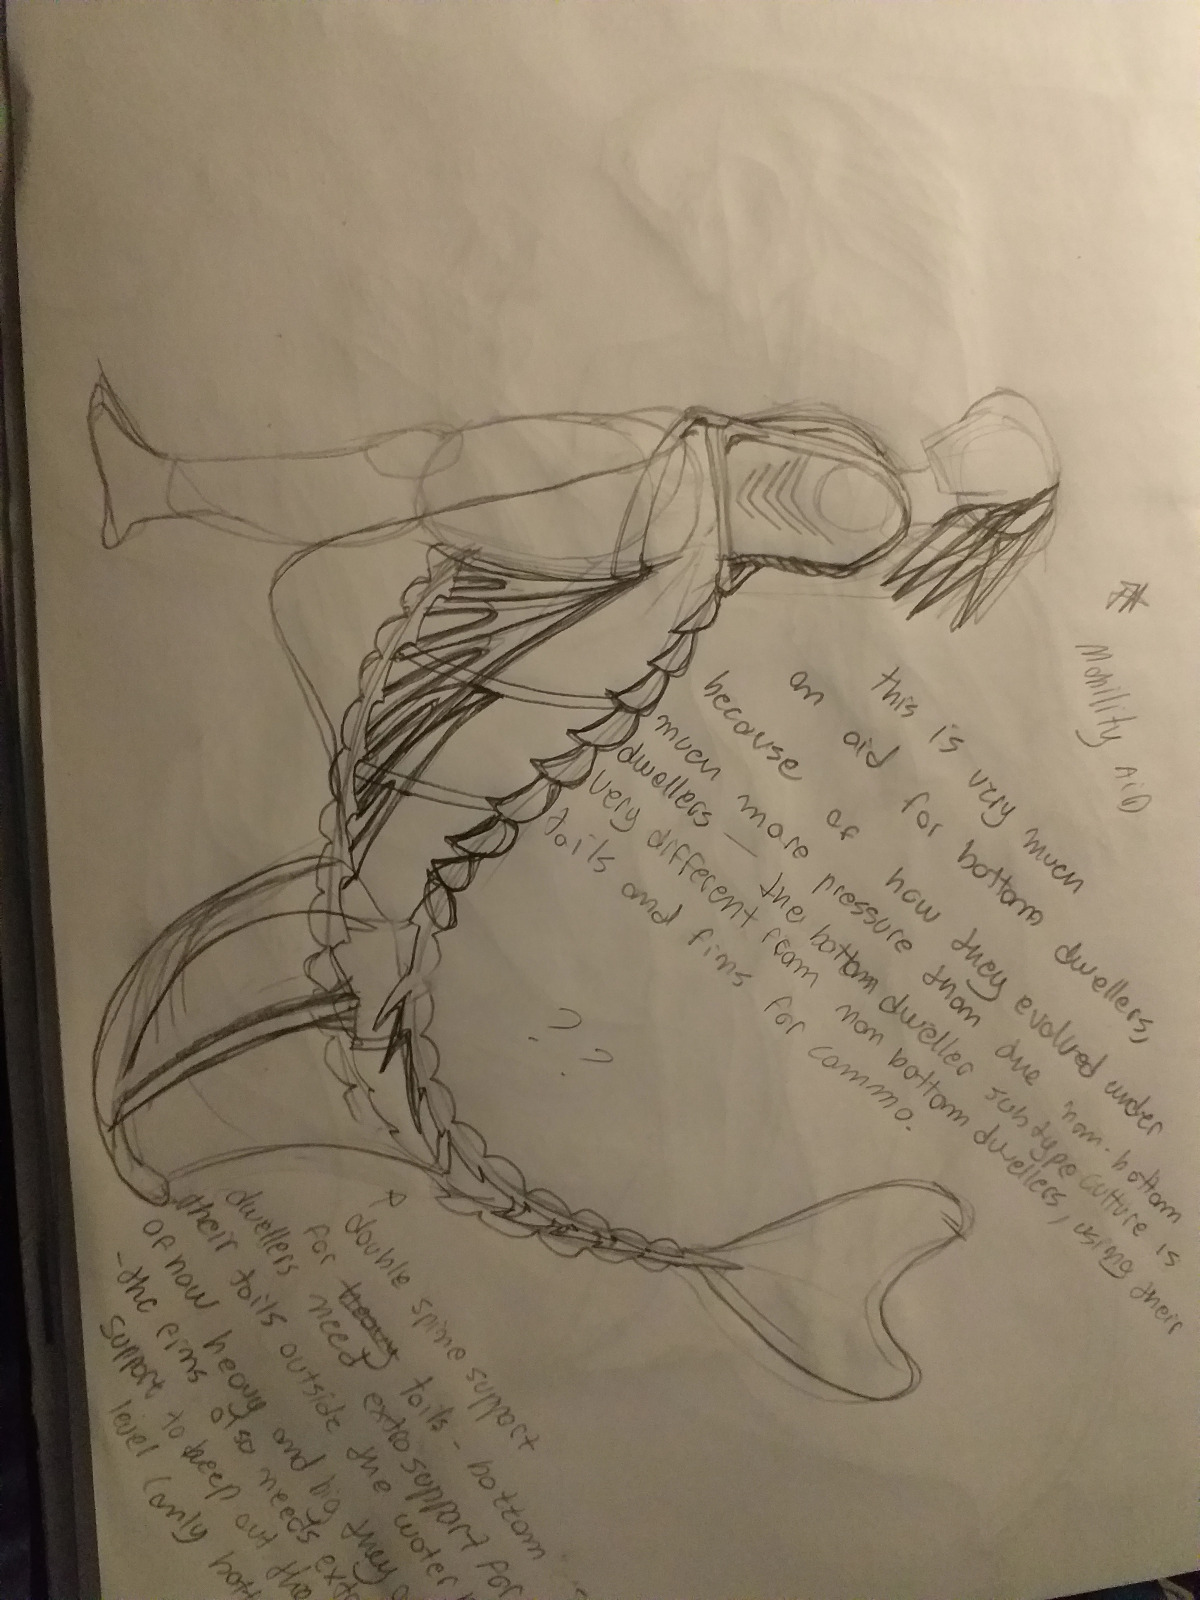 * Mobillity AiD
this is very much
an aid for bottom dwellers,
because of how they evolved under
much more pressure than due non-bottom
dwellers — the bottom dweller subtype culture is
very different from non bottom dwellers, using their
tails and fins for commo.
? ?
double spine support
for heavy tails - bottom
dwellers need extra support for
their tails outside the water
of how heavy and big they
- the fins also needs
support to keep out the
level (only